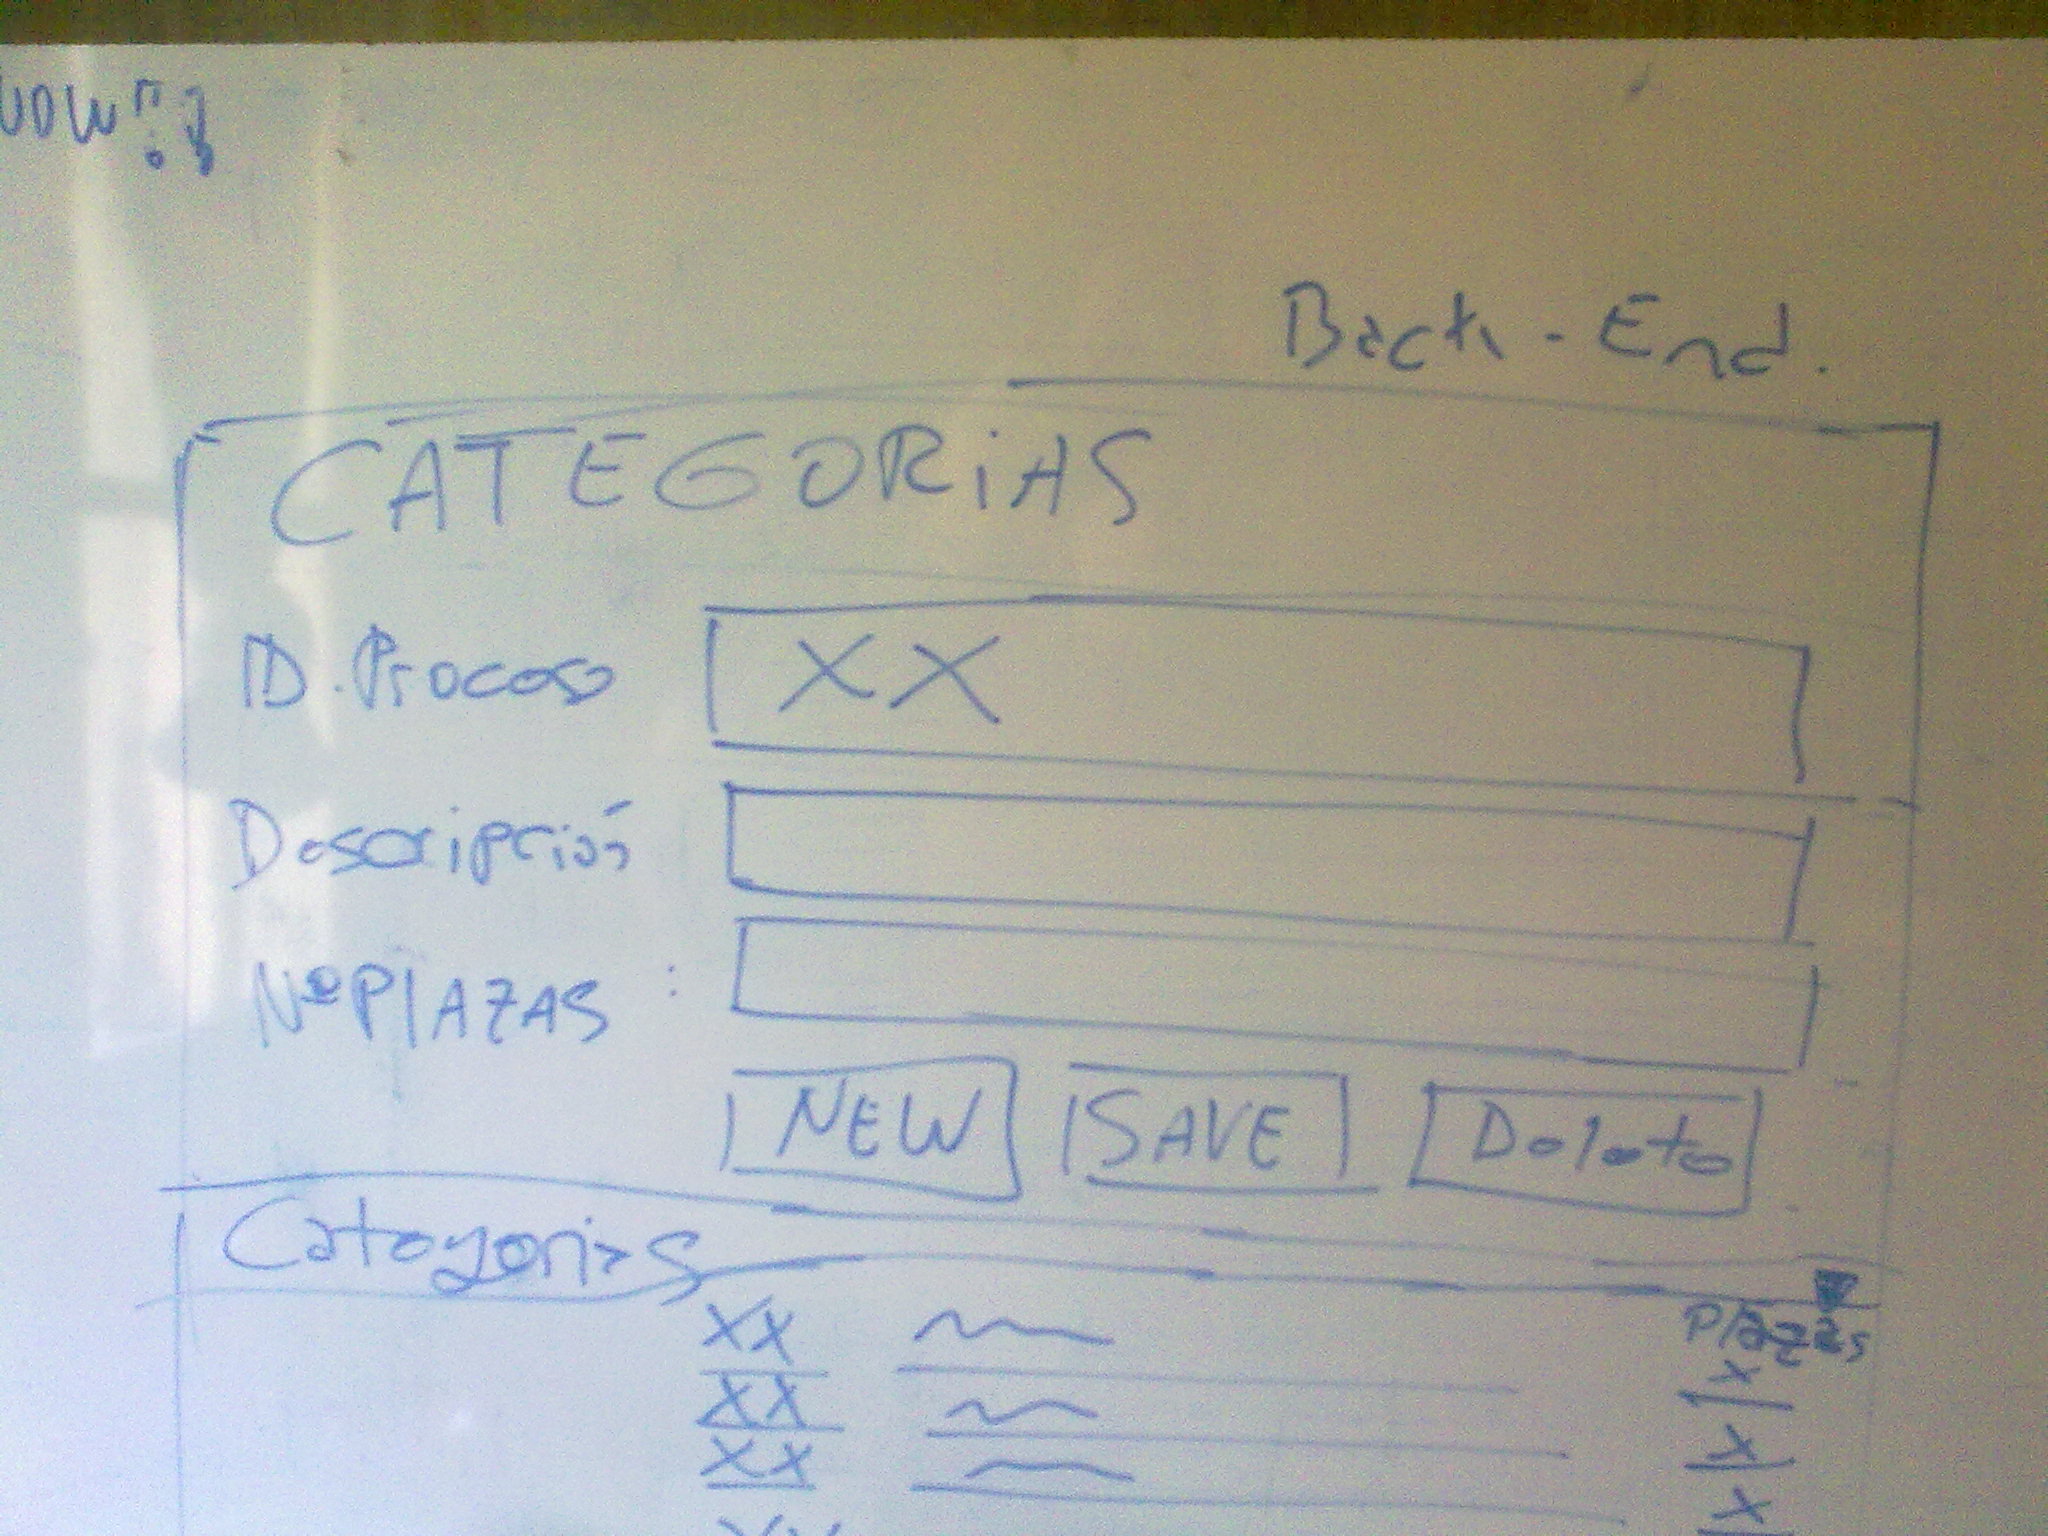 Back-End.
CATEGORIAS
ID. Proceso XX
Descripción
Nº PlAZAS :
NEW SAVE Delete
Categorias
Plazas
XX
X
XX
X
XX
X
XX